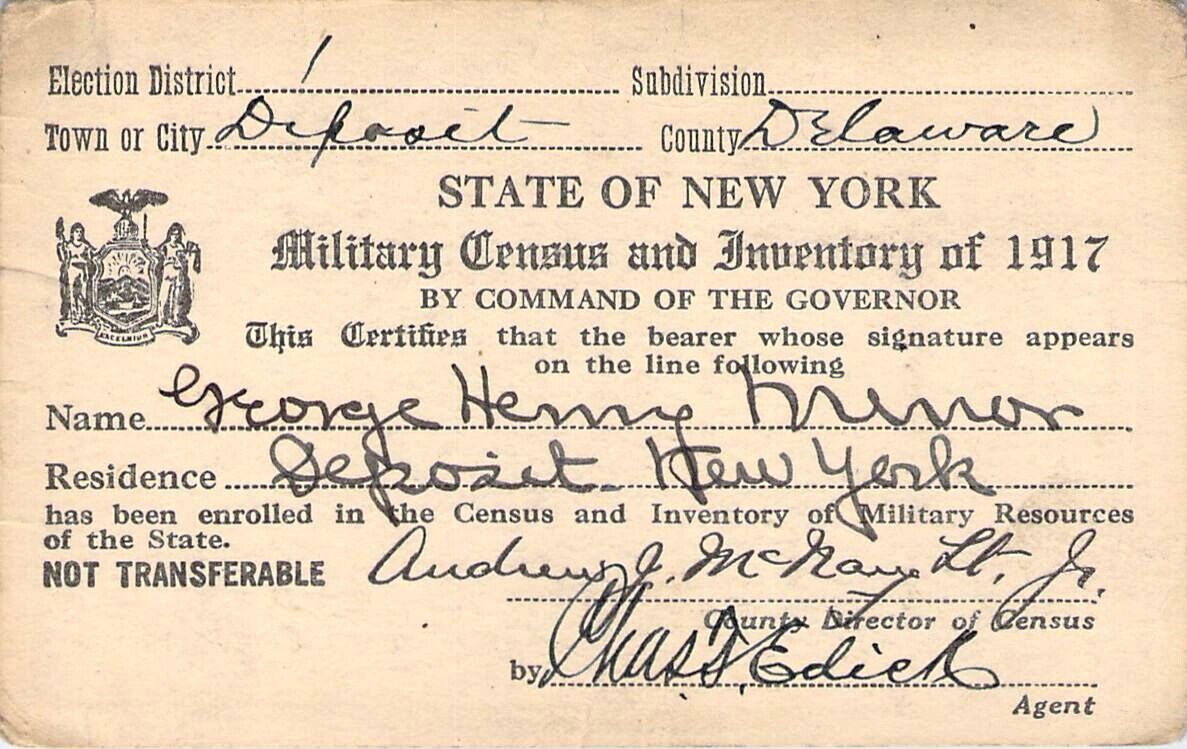 Election District 1 Subdivision
Town or City Deposit County Delaware
STATE OF NEW YORK
Military Census and Inventory of 1917
BY COMMAND OF THE GOVERNOR
EXCELSIOR
This Certifies that the bearer whose signature appears
on the line following
Name George Henry Minor
Residence Deposit - New York
has been enrolled in the Census and Inventory of Military Resources
of the State.
NOT TRANSFERABLE Andrew J. McNaught, Jr.
County Director of Census
by Chas. Edick
Agent